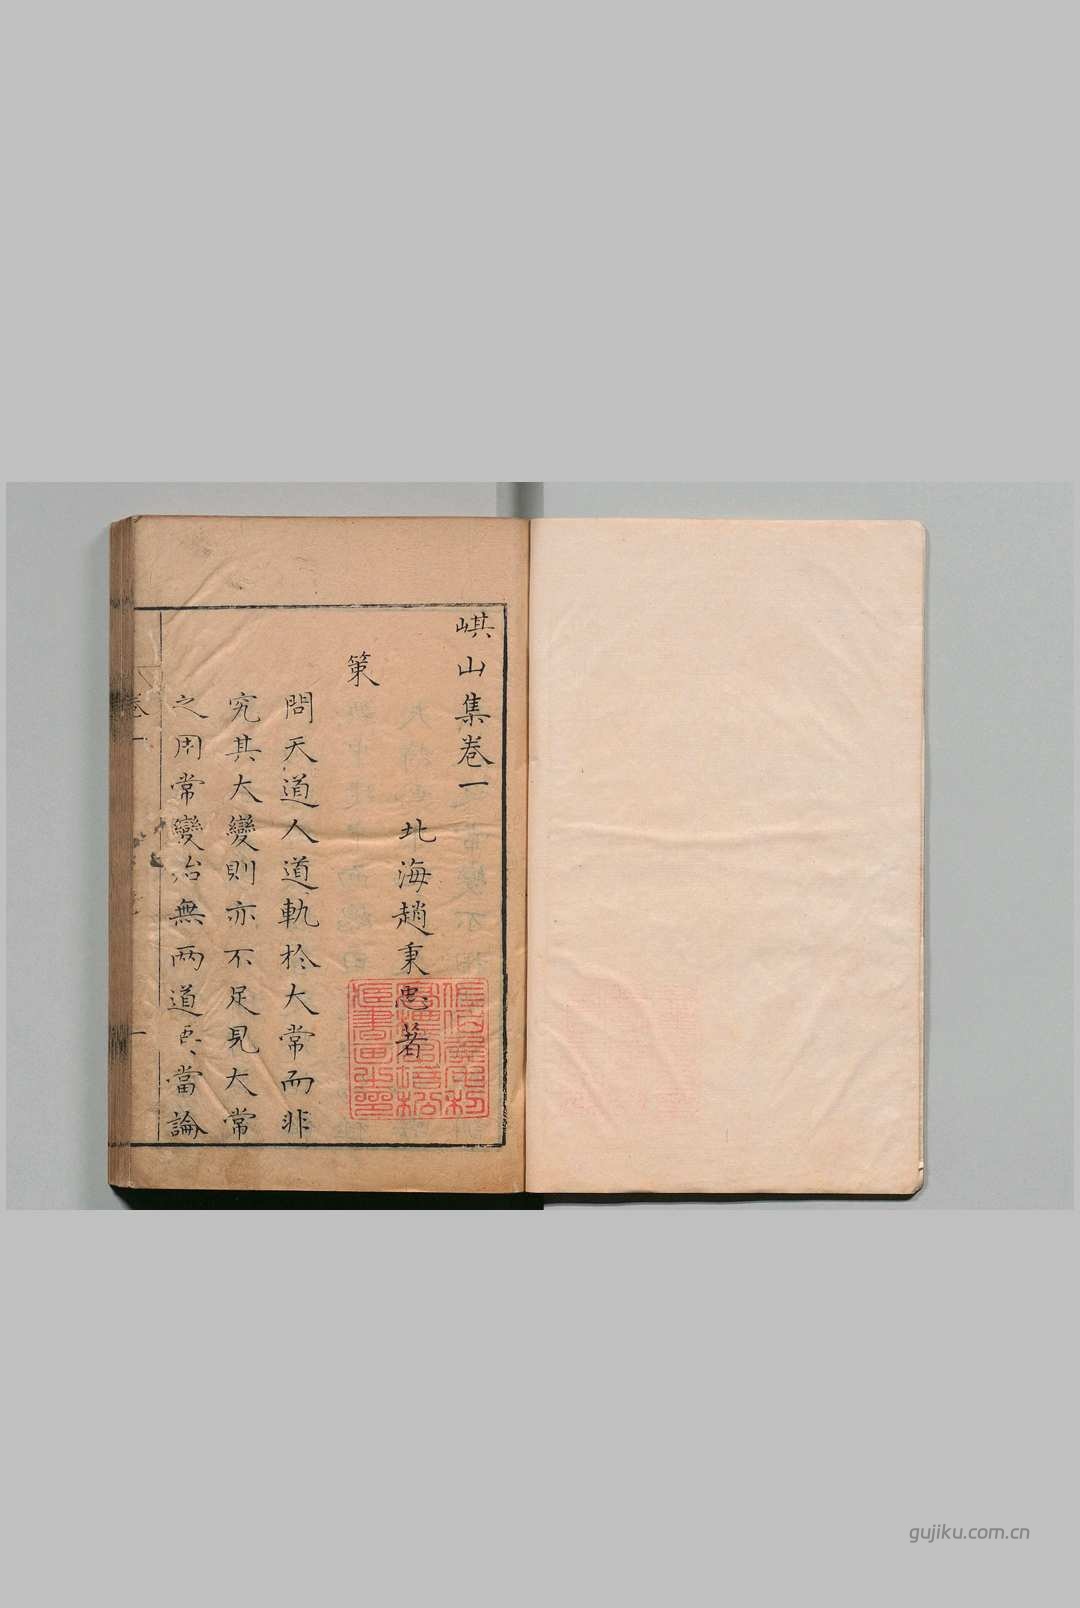 㟚山集卷一
北海趙秉忠著
策
問天道人道軌於大常而非
究其大變則亦不足見大常
之用常變治無兩道當論
卷一
一
gujiku.com.cn